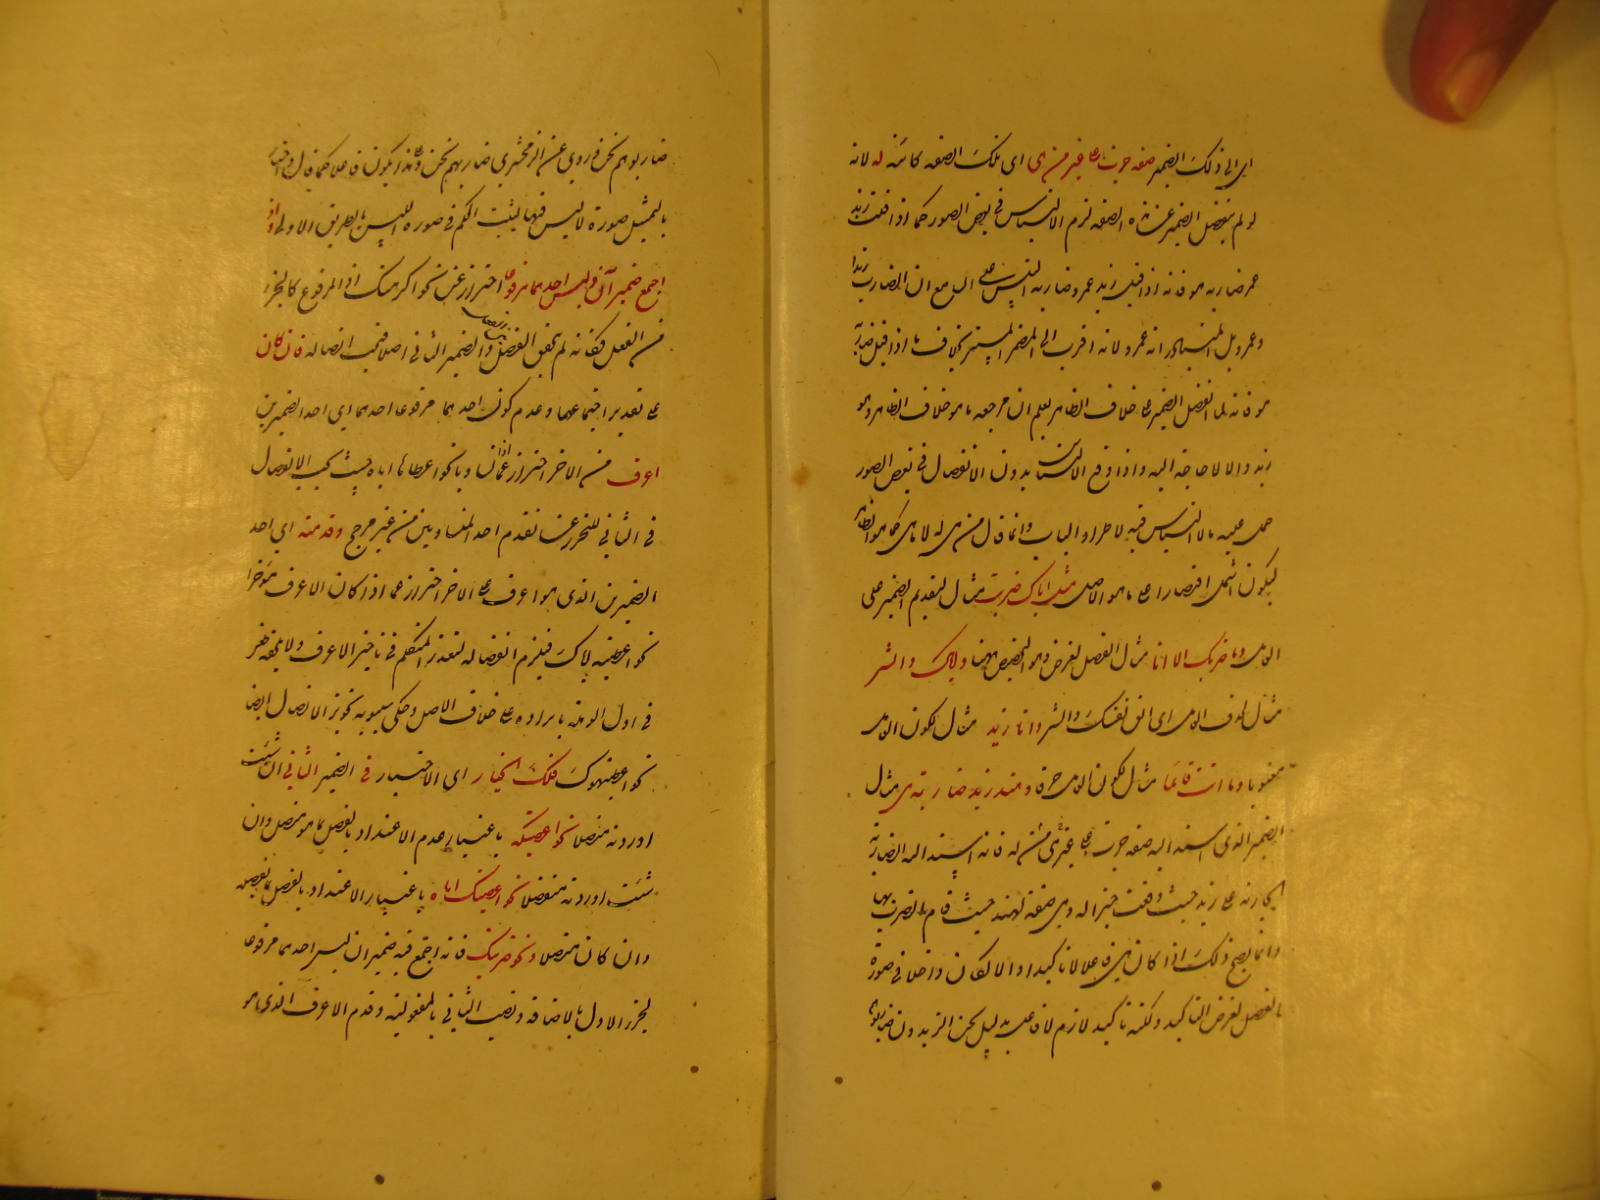 اى الى ذلك الضمير صفة جرت على غير من هى اى تلك الصفة كائنة له لانه
لو لم ينفصل الضمير عن هذه الصفة لزم الالتباس فى بعض الصور كما اذا قلت زيد
عمرو ضاربه هو فانه اذا قيل زيد عمرو ضاربه التبس على السامع ان الضارب زيد
وعمرو بل المتبادر انه عمرو لانه اقرب الى المضمر المستتر بخلاف ما اذا قيل ضاربه
هو فانه لما انفصل الضمير على خلاف الظاهر يعلم ان مرجعه ما هو خلاف الظاهر وهو
زيد والا لا حاجة اليه واذا وقع الالتباس بدون الانفصال فى بعض الصور
حمل عليه ما لا التباس فيه لاطراد الباب وانما قال من هى له لا ما هى كما هو الظاهر
ليكون اشمل اقتصارا على ما هو الاصل مثل اياك ضربت مثال لتقديم الضمير على
العامل وما ضربك الا انا مثال الفصل لغرض وهو التخصيص ههنا واياك والشر
مثال لحذف العامل اى اتق نفسك والشر وانا زيد مثال لكون العامل
معنويا وما انت قائما مثال لكون العامل حرفا وهند زيد ضاربته هى مثال
الضمير الذى اسند اليه صفة جرت على غير من هى له فانه اسند اليه الضاربة
الجارية على زيد حيث وقعت خبرا له وهى صفة لهند حيث قام الضرب بها
وانما يصح ذلك اذا كان هى فاعلا لا تاكيدا والا لكان داخلا فى صورة
الفصل لغرض التاكيد ولكنه تاكيد لازم لا فاعل بدليل نحن الزيدون ضاربوهم
ضاربوهم نحن وروى عن الزمخشرى ضاربهم نحن وعلى هذا يكون فاعلا كما قال واختار
بالتمثيل صورة لا لبس فيها ليثبت الحكم فى صورة اللبس بالطريق الاولى واذا
اجتمع ضميران وليس احدهما مرفوعا احتراز عن نحو اكرمتك اذ المرفوع كالجزء
من الفعل فكانه لم يتحقق الفصل والضمير الثانى اصلا فيجب اتصاله فان كان
على تقدير اجتماعهما وعدم كون احدهما مرفوعا احدهما اى احد الضميرين
اعرف من الاخر احتراز عما اذا تساويا نحو اعطاها اياه حيث يجب الانفصال
فى الثانى للتحرز عن تقدم احد المتساويين من غير مرجح وقدمته اى احد
الضميرين الذى هو اعرف على الاخر احتراز عما اذا كان الاعرف مؤخرا
نحو اعطيته اياك فيلزم انفصاله لتعذر المتكلم فى تاخير الاعرف ولا يلحقه طعن
فى اول الوهلة بايراده على خلاف الاصل وحكى سيبويه تجويز الاتصال ايضا
نحو اعطيتهوك فلك الخيار اى الاختيار فى الضمير الثانى ان شئت
اوردته متصلا نحو اعطيتكه باعتبار عدم الاعتداد بالفصل بما هو متصل وان
شئت اوردته منفصلا نحو اعطيتك اياه باعتبار الاعتداد بالفصل بما يفصله
وان كان متصلا ونحو ضربيك فانه اجتمع فيه ضميران ليس احدهما مرفوعا
لجر الاول بالاضافة ونصب الثانى بالمفعولية وقدم الاعرف الذى هو